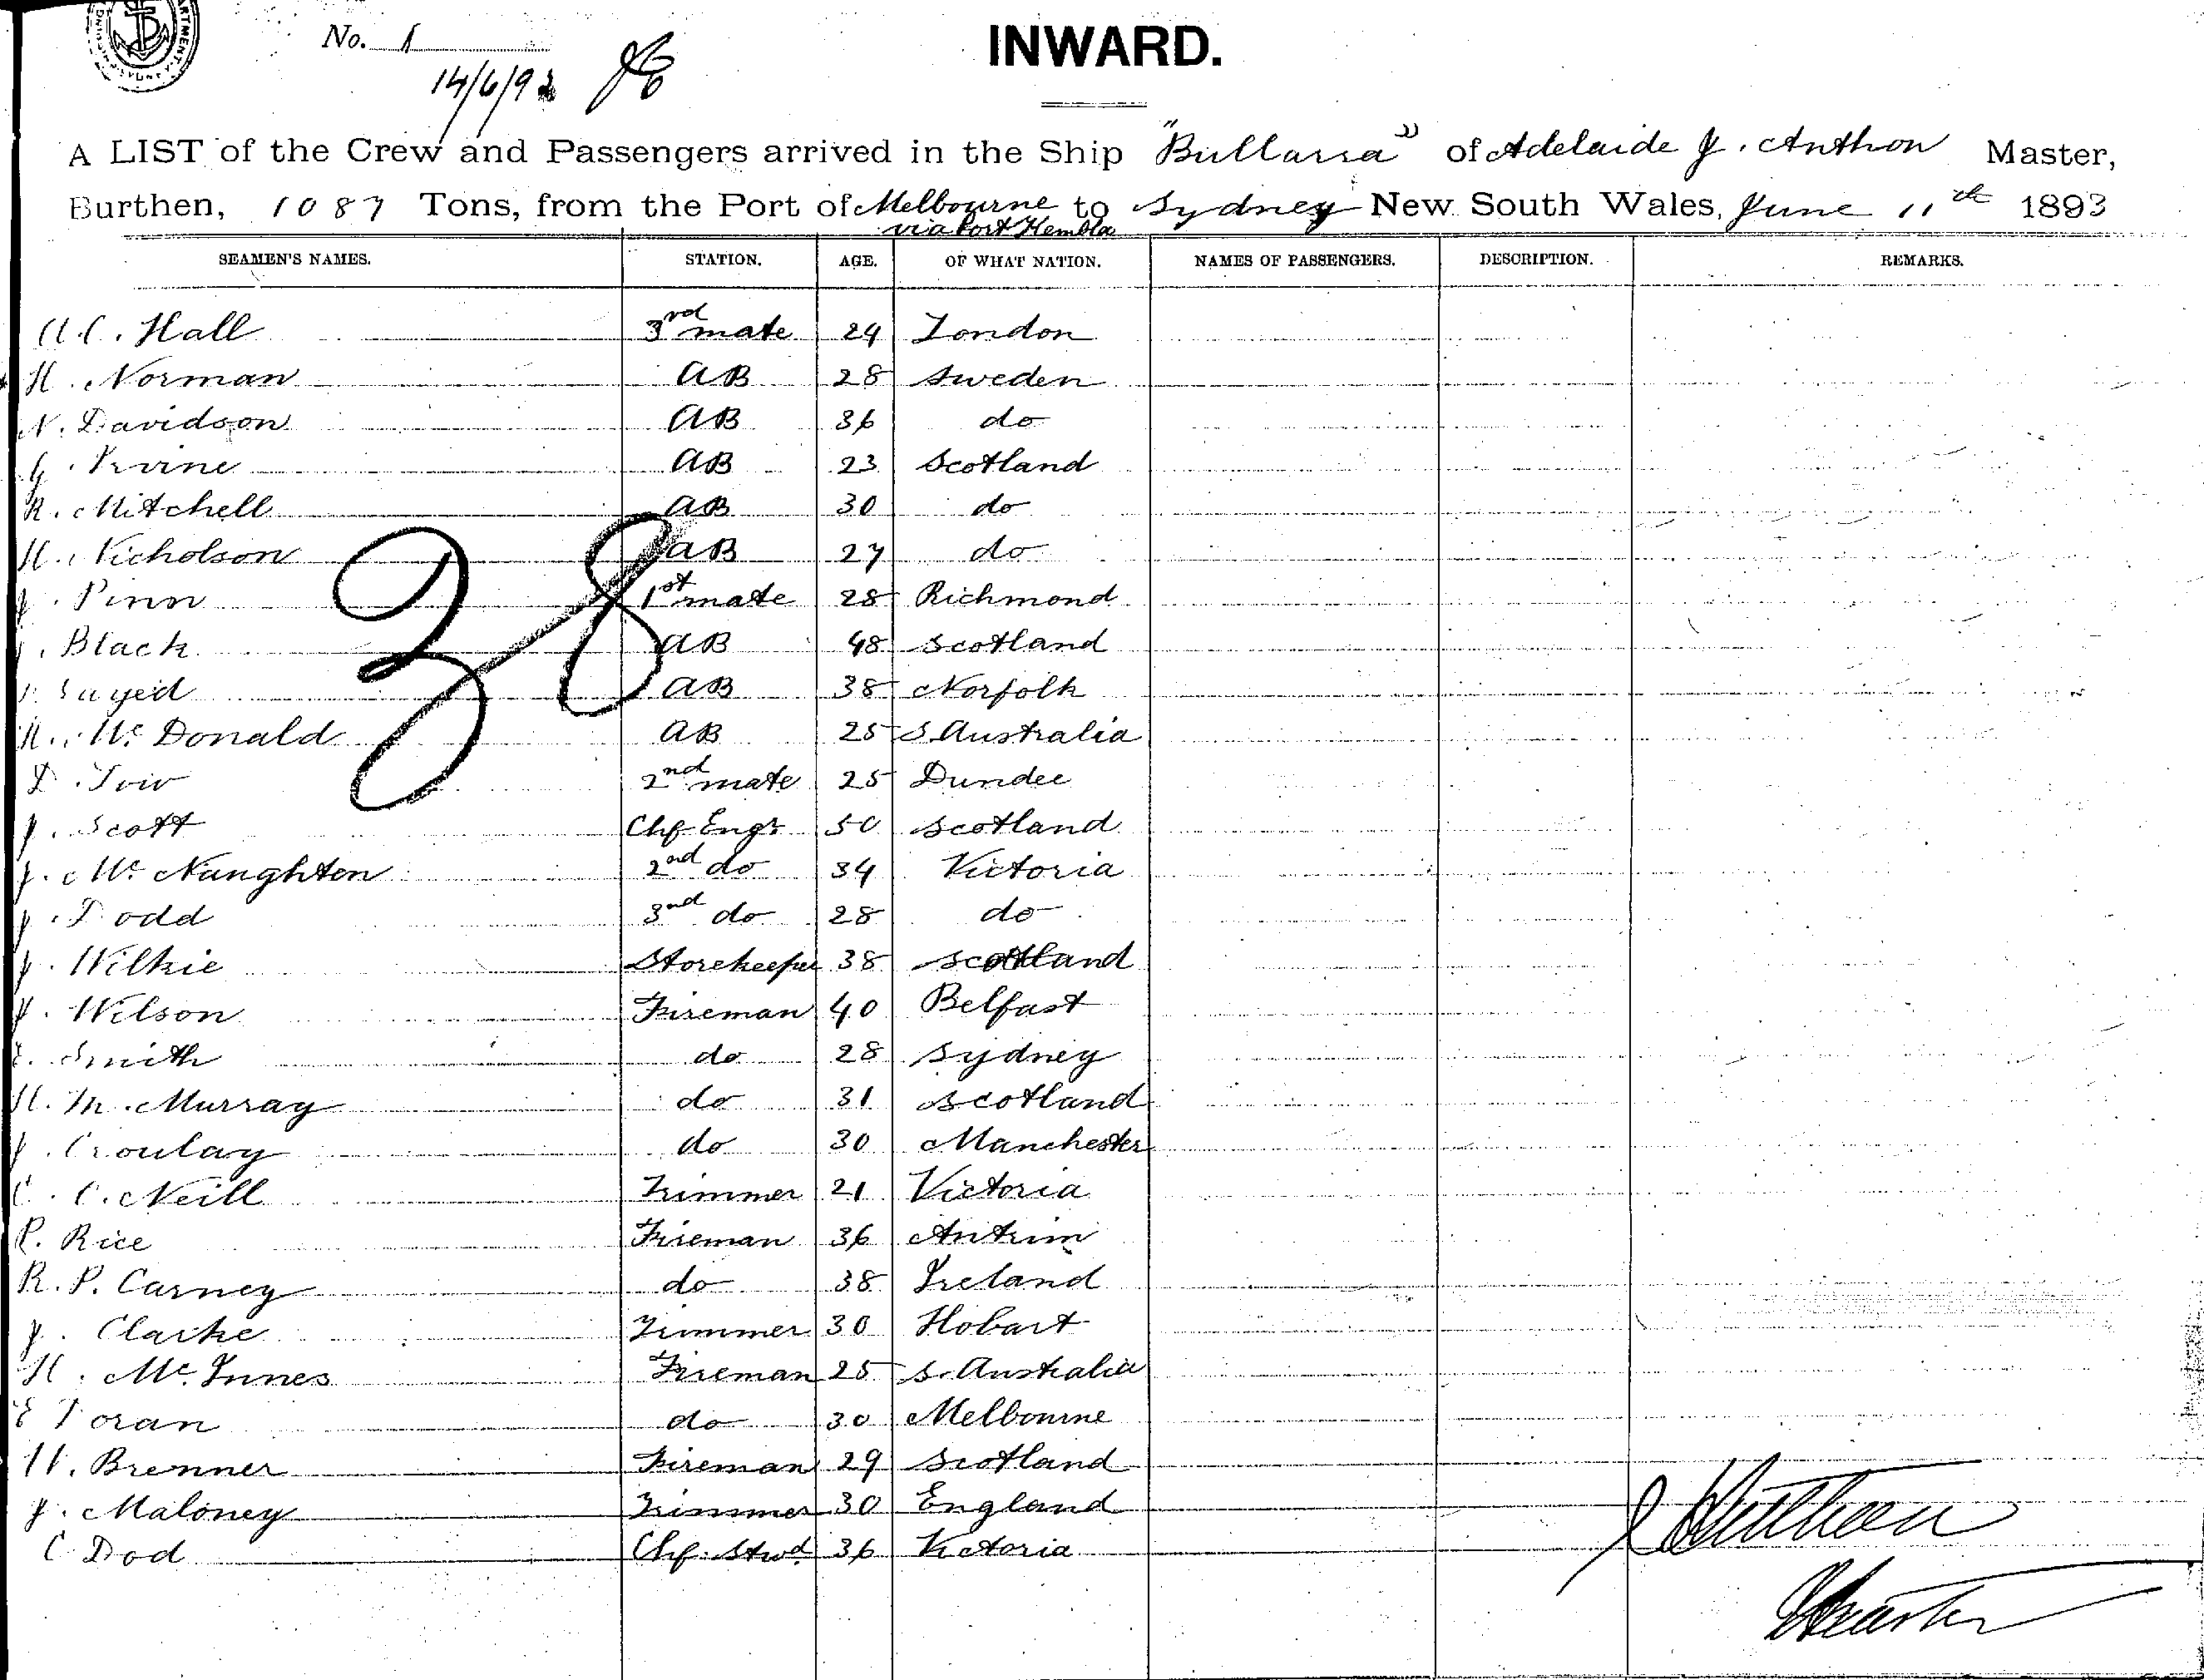 No. 1
14/6/93
INWARD.
A LIST of the Crew and Passengers arrived in the Ship "Bullarra" of Adelaide J. Anthon Master,
Burthen, 1087 Tons, from the Port of Melbourne to Sydney New South Wales, June 11th 1893
via Port Kembla
SEAMEN'S NAMES. STATION. AGE. OF WHAT NATION. NAMES OF PASSENGERS. DESCRIPTION. REMARKS.
A.C. Hall 3rd mate 24 London
H. Norman AB 28 Sweden
N. Davidson AB 36 do
G. Irvine AB 23 Scotland
R. Mitchell AB 30 do
H. Nicholson AB 27 do
J. Pinn 1st mate 28 Richmond
Black AB 48 Scotland
AB 38 Norfolk
Mc Donald AB 25 S. Australia
D. Tow 2nd mate 25 Dundee
J. Scott Chf Engr 50 Scotland
J. Mc Naughten 2nd do 34 Victoria
J. Dodd 3nd do 28 do
J. Wilkie Storekeeper 38 Scotland
J. Wilson Fireman 40 Belfast
Smith do 28 Sydney
H. M. Murray do 31 Scotland
J. Croulay do 30 Manchester
C. C. Neill Trimmer 21 Victoria
P. Rice Fireman 36 Antrim
R. P. Carney do 38 Ireland
J. Clarke Trimmer 30 Hobart
H. Mc Innes Fireman 25 S. Australia
E Doran do 30 Melbourne
W. Brenner Fireman 29 Scotland
J. Maloney Trimmer 30 England
C Dod Chf. Stwd 36 Victoria
38
J Anthon
Master